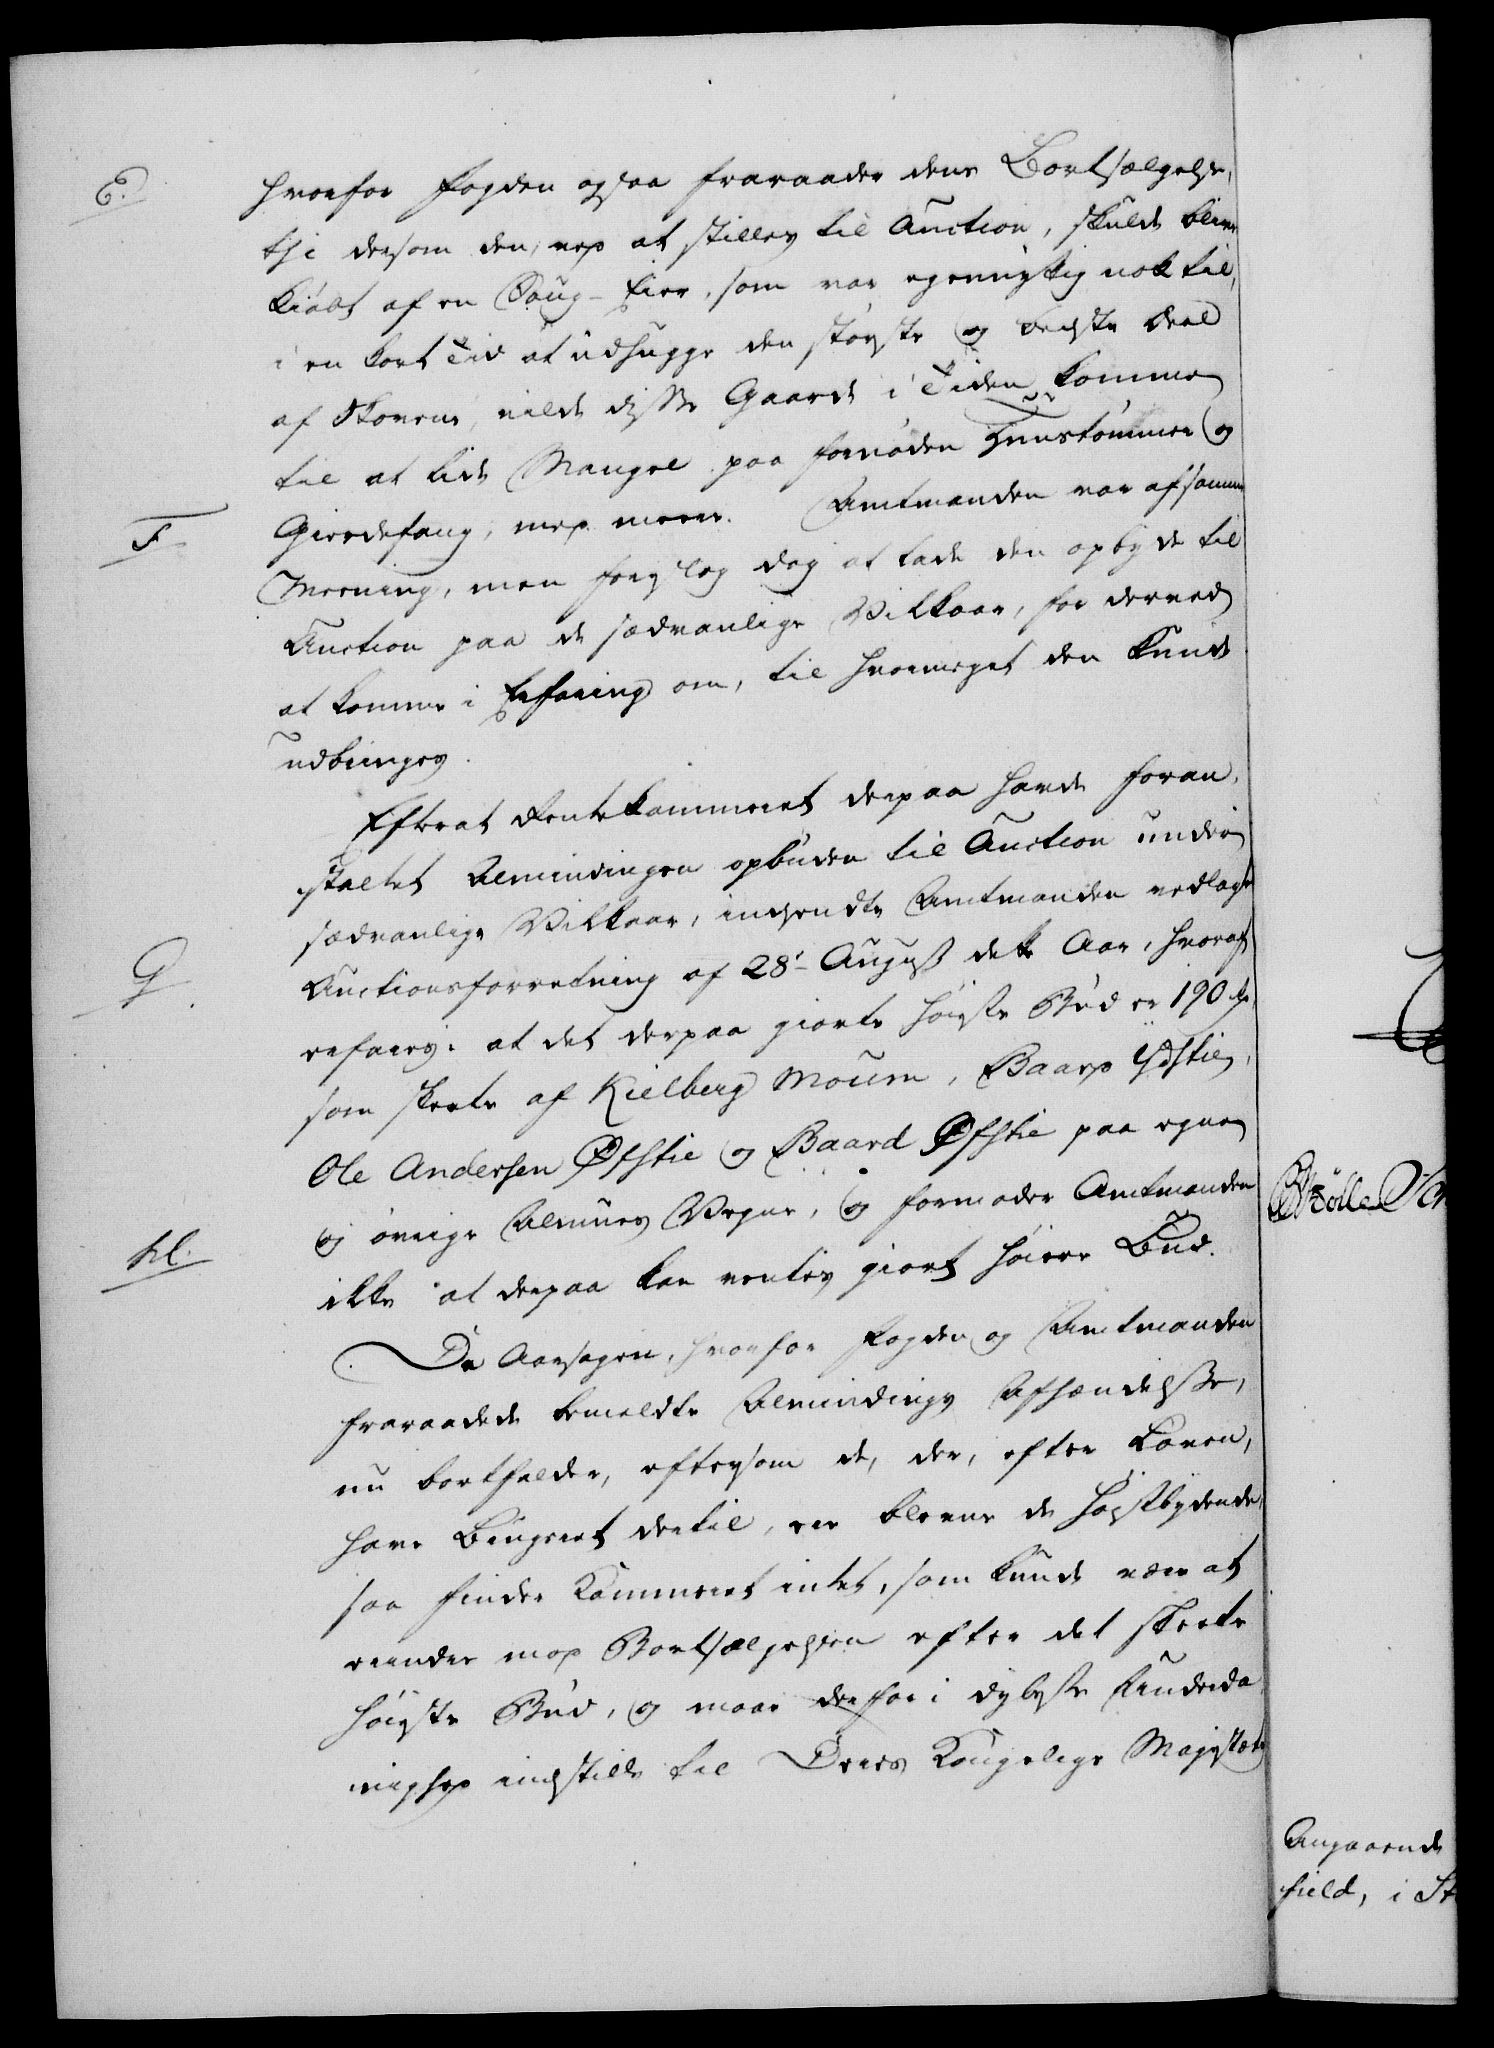 E.
hvorfor Fogden ogsaa fraraader dens Bortsælgelse,
thi dersom den, ved at stilles til Auction, skulde blive
kiøbt af en Saug-Eier, som var egennyttig nok til,
i en kort Tid at udhugge den største og bedste Deel
af Skovene, vilde disse Gaarde i Tiden komme
til at lide Mangel paa fornøden Huustømmer og
F
Gierdefang, med meere. Amtmanden var af samme
Meening, men foreslog dog at lade den opbyde til
Auction paa de sædvanlige Vilkaar, for derved
at komme i Erfaring om, til hvormeget den kunde
udbringes.
Efterat Rentekammeret derpaa havde foran-
staltet Almindingen opbuden til Auction under
sædvanlige Vilkaar, indsendte Amtmanden vedlagte
G.
Auctionsforretning af 28de August dette Aar, hvoraf
erfares: at det derpaa giorte høieste Bud er 190 rd,
som skeete af Kielberg Moum, Baard Østie,
Ole Andersen Øfstie og Baard Øfstie paa egne
og øvrige Almues Vegne, og formoder Amtmanden
H.
ikke at derpaa kan ventes giort høiere Bud.
Da Aarsagen, hvorfor Fogden og Amtmanden
fraraadede bemeldte Almindings Afhændelse,
nu bortfalder, eftersom de, der, efter Loven,
have Brugsret dertil, ere blevne de høistbydende,
saa finder Kammeret intet, som kunde være at
erindre mod Bortsælgelsen efter det skeete
høieste Bud, og maae derfor i dybeste Underda-
nighed indstille til Deres Kongelige Majestæts
Angaaende
field, i St